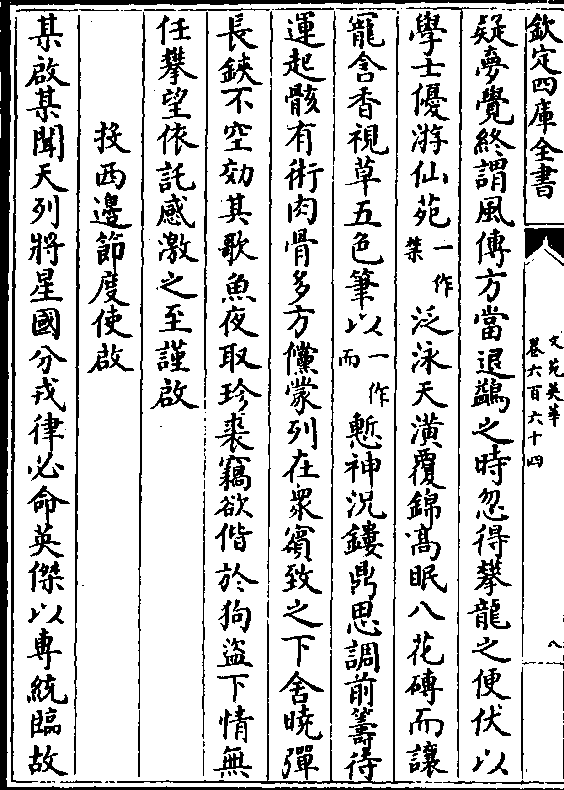 欽定四庫全書
文苑英華
卷六百六十四
八
疑夢覺終謂風傳方當退鷁之時忽得攀龍之便伏以
學士優游仙苑一作禁泛泳天潢覆錦高眠八花磚而讓
寵含香視草五色筆以一作而慙神況鏤鼎思調前籌待
運起骸有術肉骨多方儻蒙列在衆賓致之下舍曉彈
長鋏不空効其歌魚夜取珍裘竊欲偕於狗盗下情無
任攀望依託感激之至謹啟
投西邊節度使啟
某啟某聞天列將星國分戎律必命英傑以専統臨故